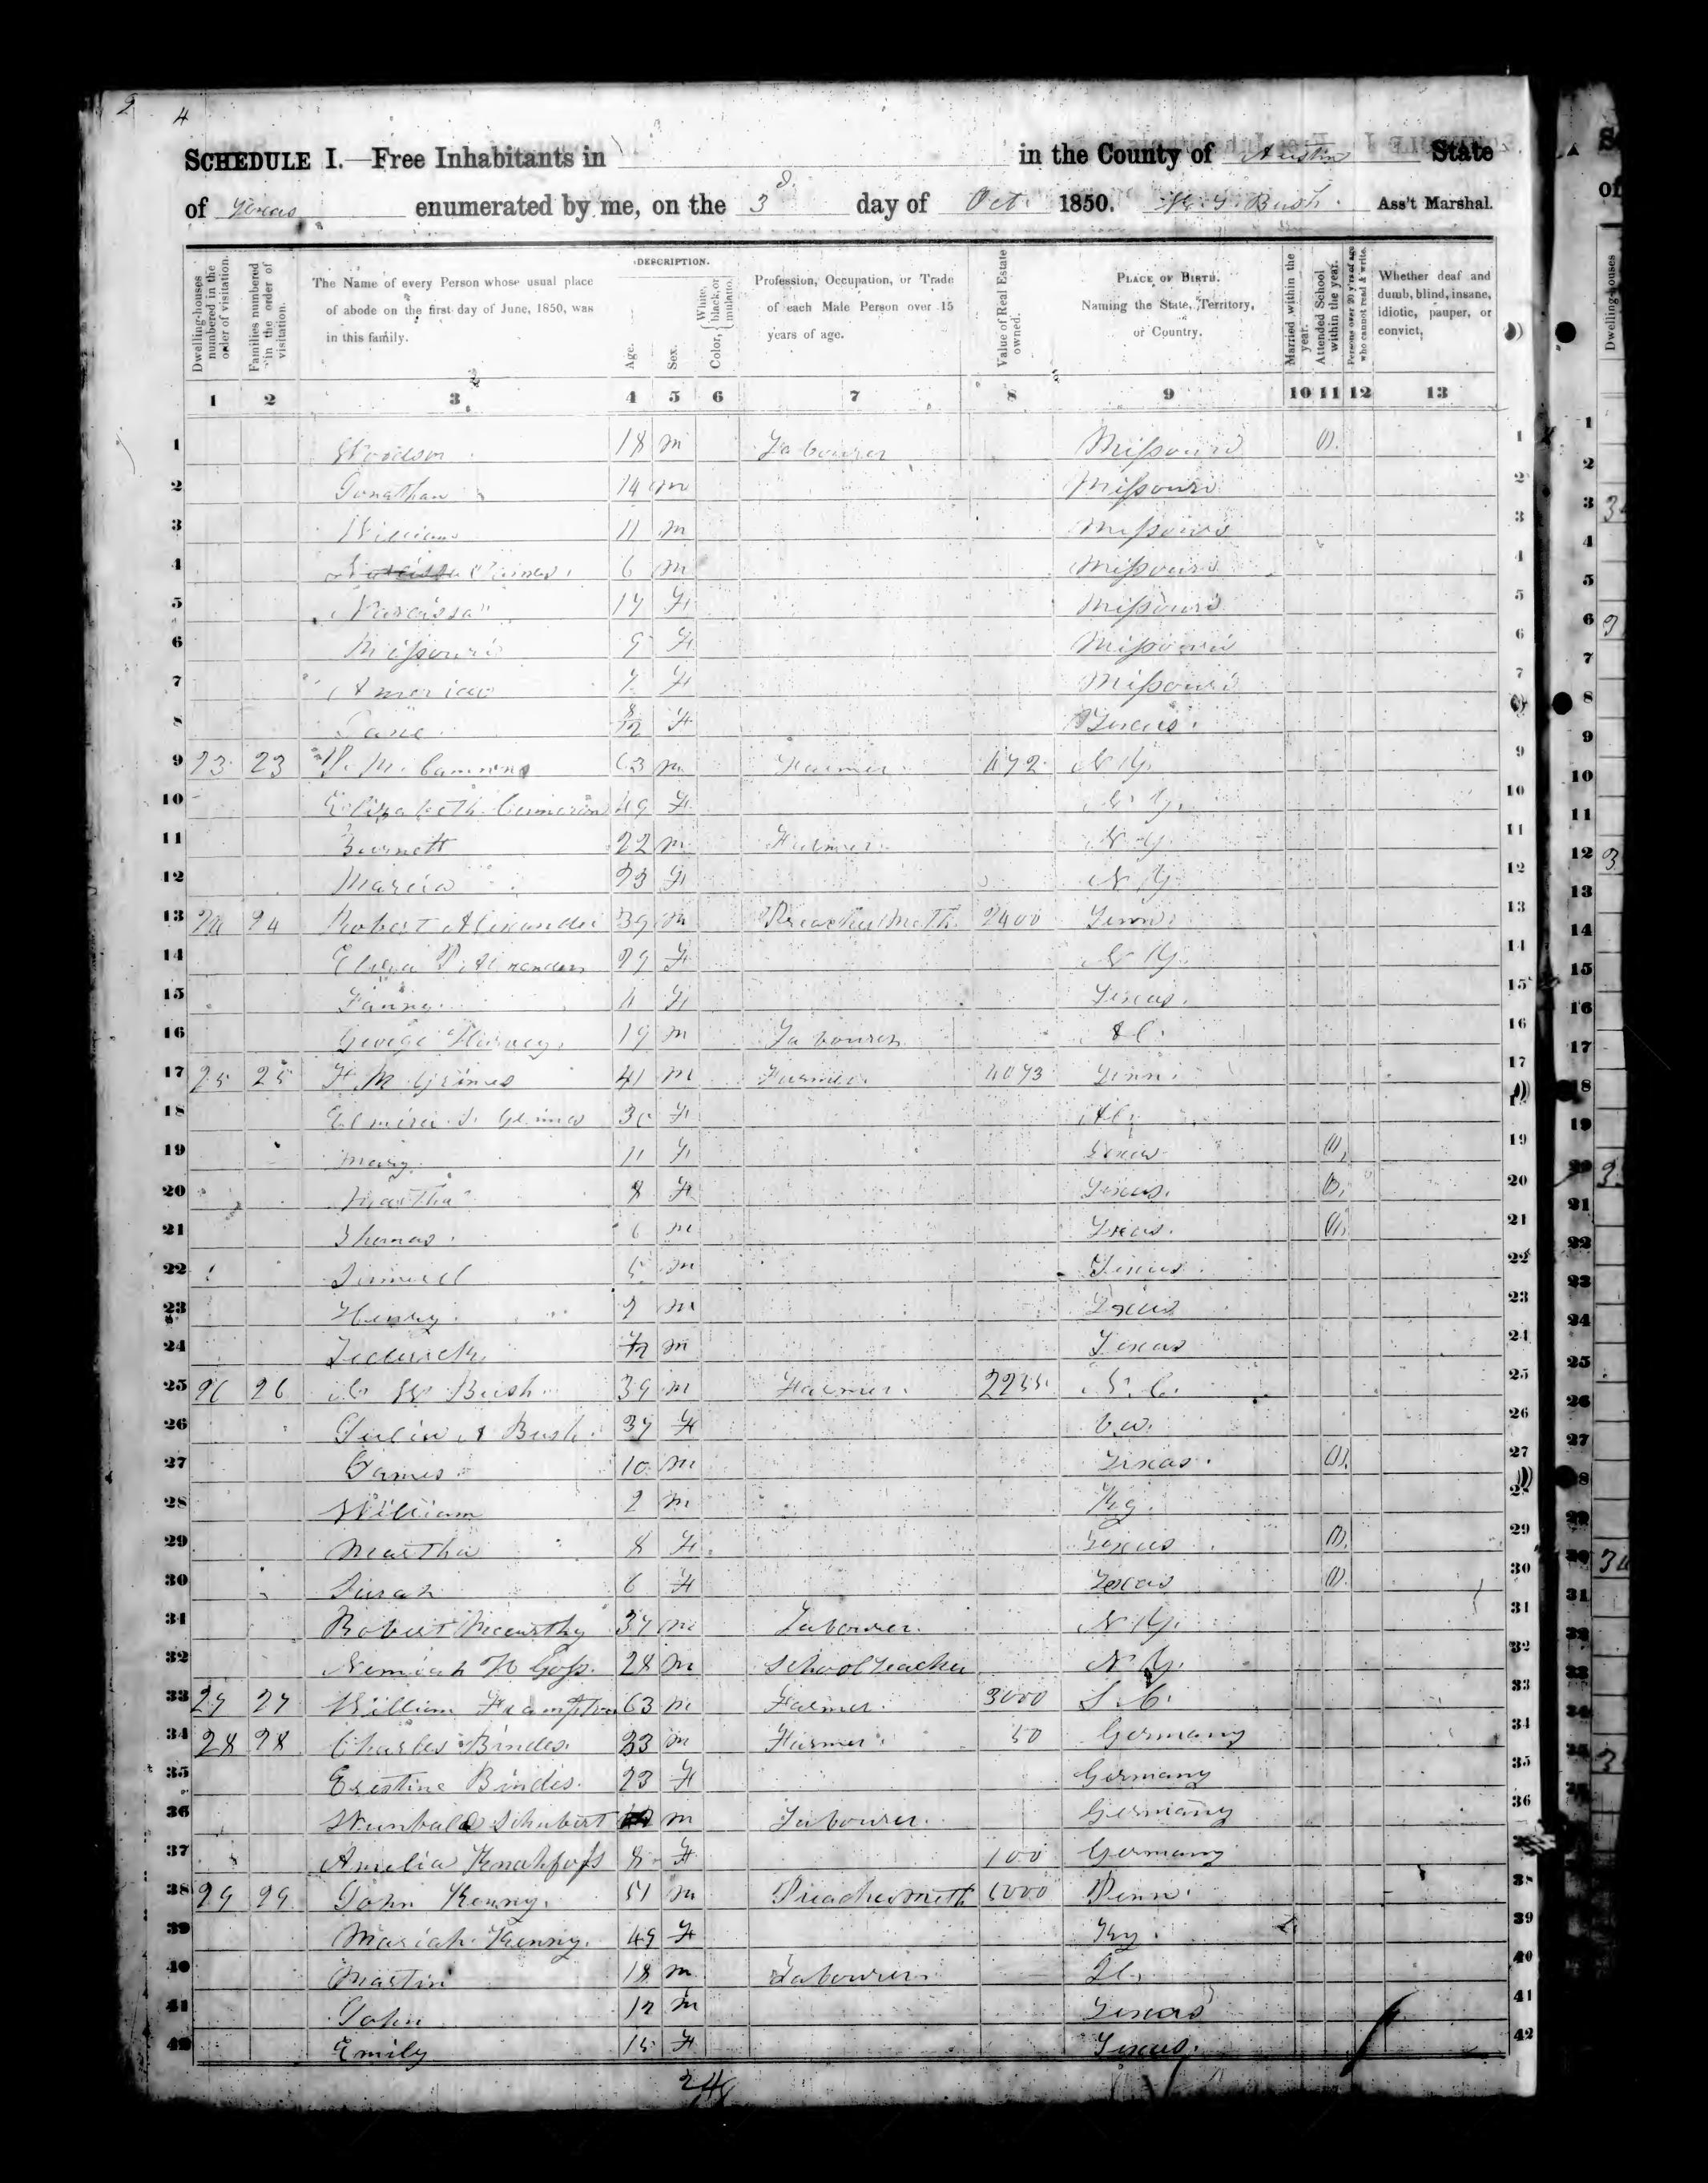 2 4
SCHEDULE I.—Free Inhabitants in in the County of Austin State
of Texas enumerated by me, on the 3d day of Oct. 1850. Bush. Ass't Marshal.
Dwelling-houses numbered in the order of visitation.
Families numbered in the order of visitation.
The Name of every Person whose usual place of abode on the first day of June, 1850, was in this family.
DESCRIPTION.
Age.
Sex.
Color, { White, black, or mulatto.
Profession, Occupation, or Trade of each Male Person over 15 years of age.
Value of Real Estate owned.
PLACE OF BIRTH. Naming the State, Territory, or Country.
Married within the year.
Attended School within the year.
Persons over 20 y'rs of age who cannot read & write.
Whether deaf and dumb, blind, insane, idiotic, pauper, or convict,
1 2 3 4 5 6 7 8 9 10 11 12 13
1 Woodson 18 m Labourer Missouri (1). 1
2 Jonathan 14 m Missouri 2
3 William 11 m Missouri 3
4 6 m Missouri 4
5 Narcissa 17 F Missouri 5
6 Missouri 9 F Missouri 6
7 America 7 F Missouri 7
8 Jane 8/12 F Texas. 8
9 23 23 63 m Farmer 472 N Y. 9
10 Elizabeth Cameron 49 F N Y. 10
11 Burnett 22 m Farmer N Y 11
12 Maria 23 F N Y 12
13 24 24 Robert Alexander 39 m Preacher Meth. 2400 Tenn. 13
14 Eliza P. Alexander 29 F N Y. 14
15 Fanny 4 F Texas. 15
16 George Harvey. 19 m Labourer 16
17 25 25 F M Grimes 41 m Farmer. 4073 Tenn. 17
18 Elmira S. Grimes 30 F 18
19 Mary 11 F Texas (1), 19
20 Martha 8 F Texas. (1), 20
21 Thomas. 6 m Texas. (1), 21
22 Samuel 5 m Texas. 22
23 Henry. 2 m Texas 23
24 Frederick m Texas 24
25 26 26 W Bush 39 m Farmer. N. C. 25
26 Julia A Bush. 37 F Va. 26
27 James 10 m Texas. (1), 27
28 William 2 m Ky. 28
29 Martha 8 F Texas (1), 29
30 Sarah 6 F Texas (1), 30
31 Robert Mccarthy 37 m Labourer. N Y. 31
32 Nemiah Goss. 28 m School teacher N Y. 32
33 27 27 William Frampton 63 m Farmer. 3000 S C. 33
34 28 28 Charles Bindes. 33 m Farmer. 50 Germany 34
35 Erestine Bindes. 23 F Germany 35
36 Wunbald Schubert m Labourer. Germany 36
37 Amelia 8 F 100 Germany 37
38 29 29 John Kenny. 51 m Preacher Meth 6000 Penn. 38
39 Mariah Kenny. 49 F Ky. 39
40 Martin 18 m Labourer Il. 40
41 John 12 m Texas 41
42 Emily 15 F Texas. 42